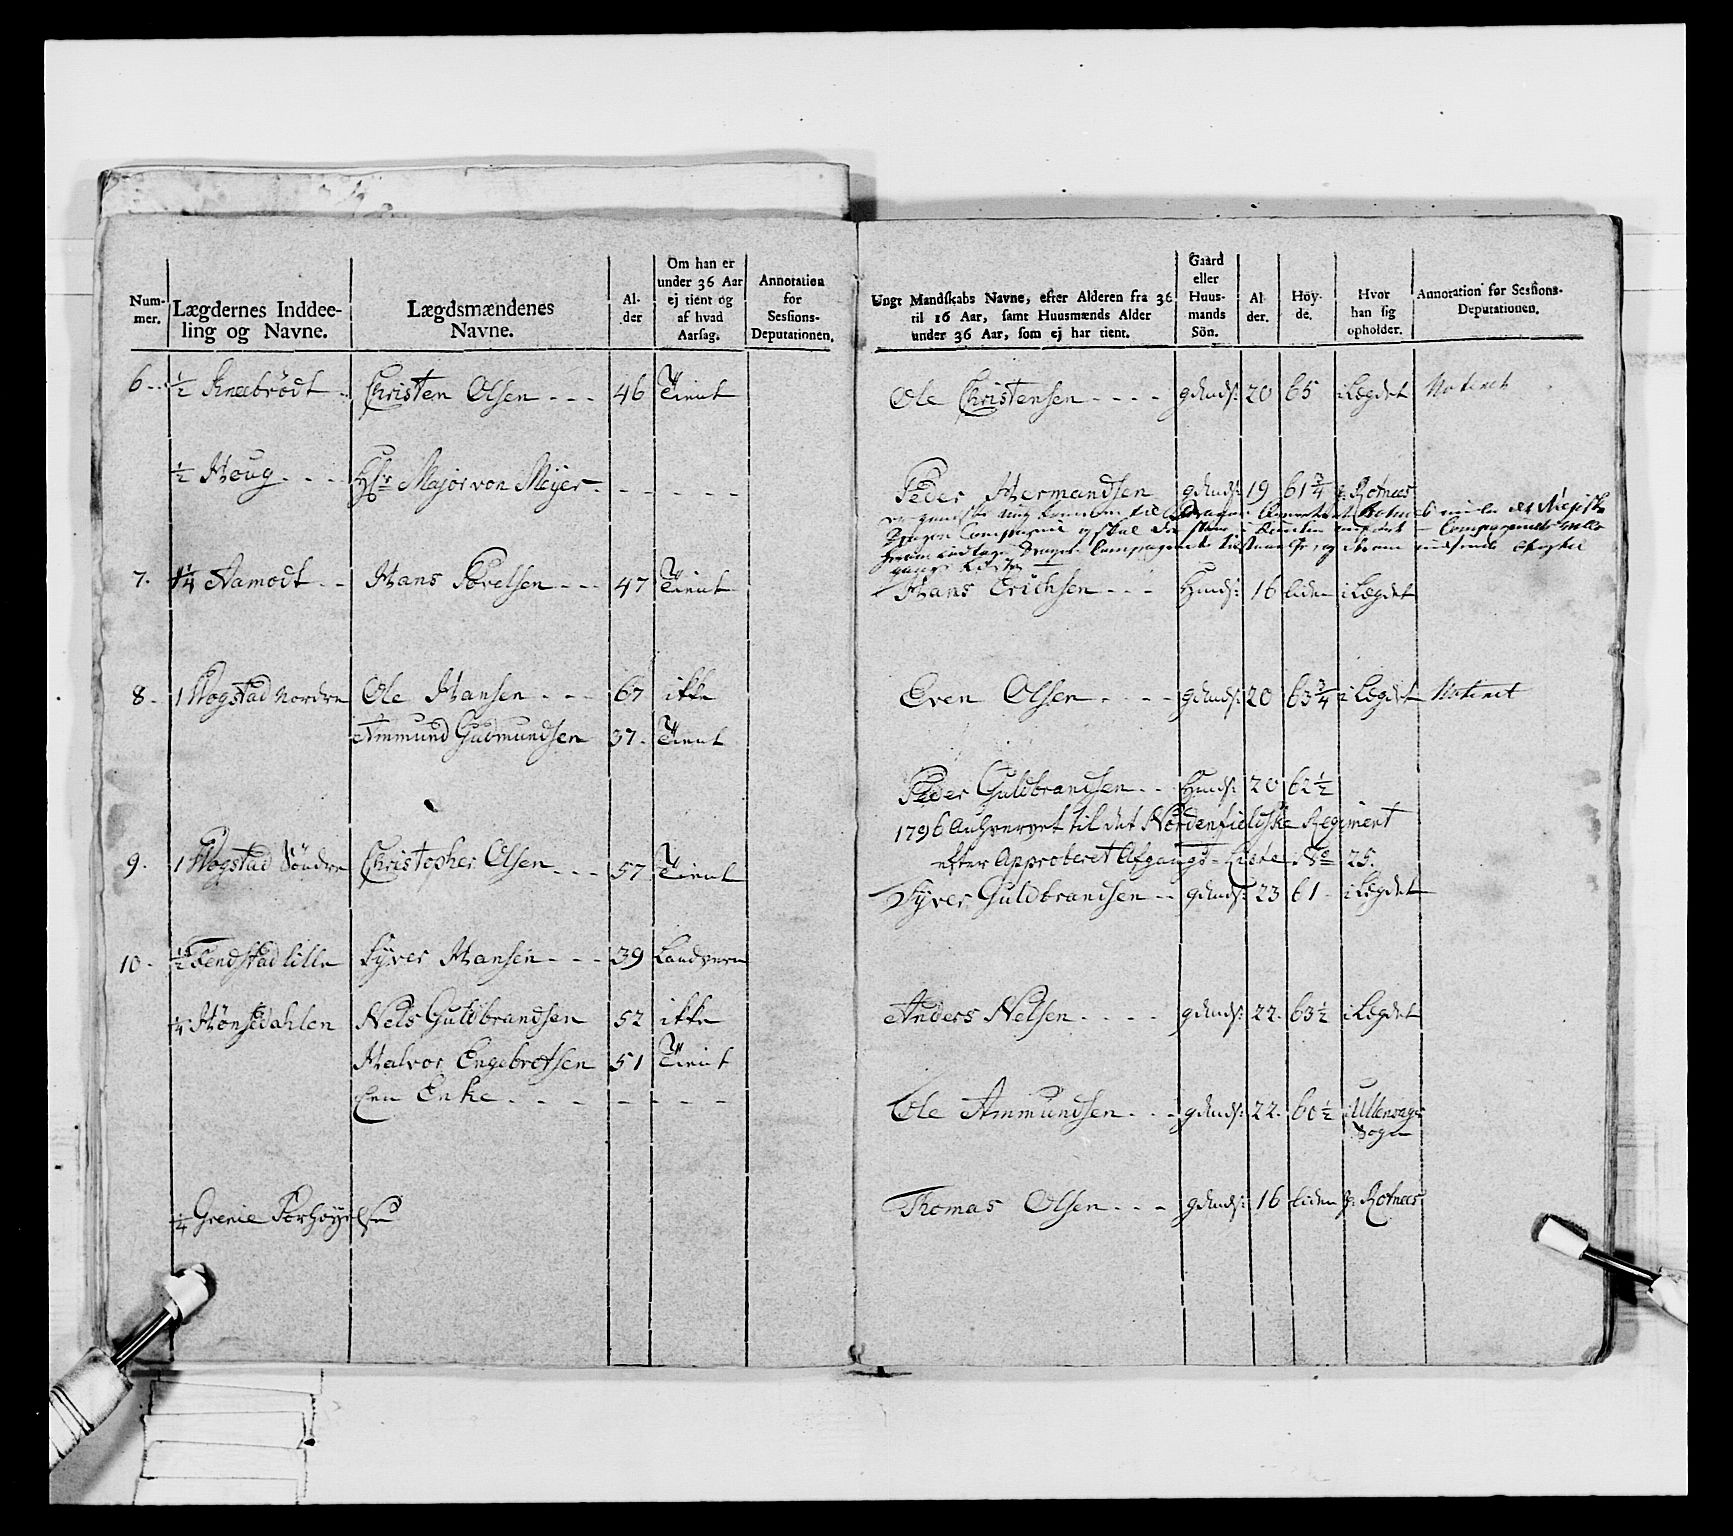 Num-
mer.
Lægdernes Inddee-
ling og Navne.
Lægdsmændenes
Navne.
Al-
der
Om han er
under 36 Aar
ej tient og
af hvad
Aarsag.
Annotation
for
Sessions-
Deputationen.
6 - ½ Kneebrödt Christen Olsen - - - 46 Tient
½ Houg - - - Hr Major von Meyer - - - - -
7. ¼ Aamodt - - Hans Povelsen - - - 47 Tient
8 - 1 Mogstad Nordre Ole Hansen - - - 67 ikke
Ammund Gudmundsen 37 - Tient
9. 1 Mogstad Söndre Christopher Olsen - - - 57 Tient
10 - ½ Tendstad lille Syver Hansen - - - 39 Landvern
¼ Hönsedahlen Nels Guldbrandsen 52 ikke
Halvor Engebretsen 51 Tient
Een Enke - - - - - - -
¼ Grenie Forhøyelse
Ungt Mandskabs Navne, efter Alderen fra 36
til 16 Aar, samt Huusmænds Alder
under 36 Aar, som ej har tient.
Gaard
eller
Huus-
mands
Sön.
Al-
der.
Höy-
de.
Hvor
han sig
opholder.
Annotation for Sessions-
Deputationen.
Ole Christensen - - - - gdmds: 20 65 i Lægdet Noteret
Peder Hermandsen gdmds: 19 61¾ p: Rotnees
Dragon Compagnie og skal
Hans Erichsen - - - Hmds: 16 liden i Lægdet
Even Olsen - - - - gdmds: 20 63¾ i Lægdet Noteret
Peder Guldbrandsen - - Hmds: 20 62½
1796 Anhvervet til det Nordenfieldske Regiment
efter Approberet Afgangs-Liste No 25.
Syver Guldbrandsen - - gdmds: 23 61 - i Lægdet
Anders Nelsen - - - - gdmds: 22. 63½ i Lægdet
Ole Ammundsen - - - gdmds: 22. 60½ i Ullensager
Sogn
Thomas Olsen - - - gdmds: 16 liden p: Rotnees